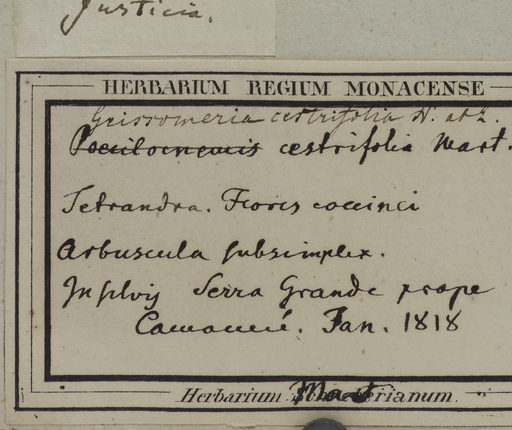 Justicia.
HERBARIUM REGIUM MONACENSE
Geissomeria cestrifolia N. ab E.
cestrifolia Mart.
Tetrandra. Flores coccinei
Arbuscula subsimplex.
In sylvis Serra Grande prope
Camamú. Jan. 1818
Herbarium Mart